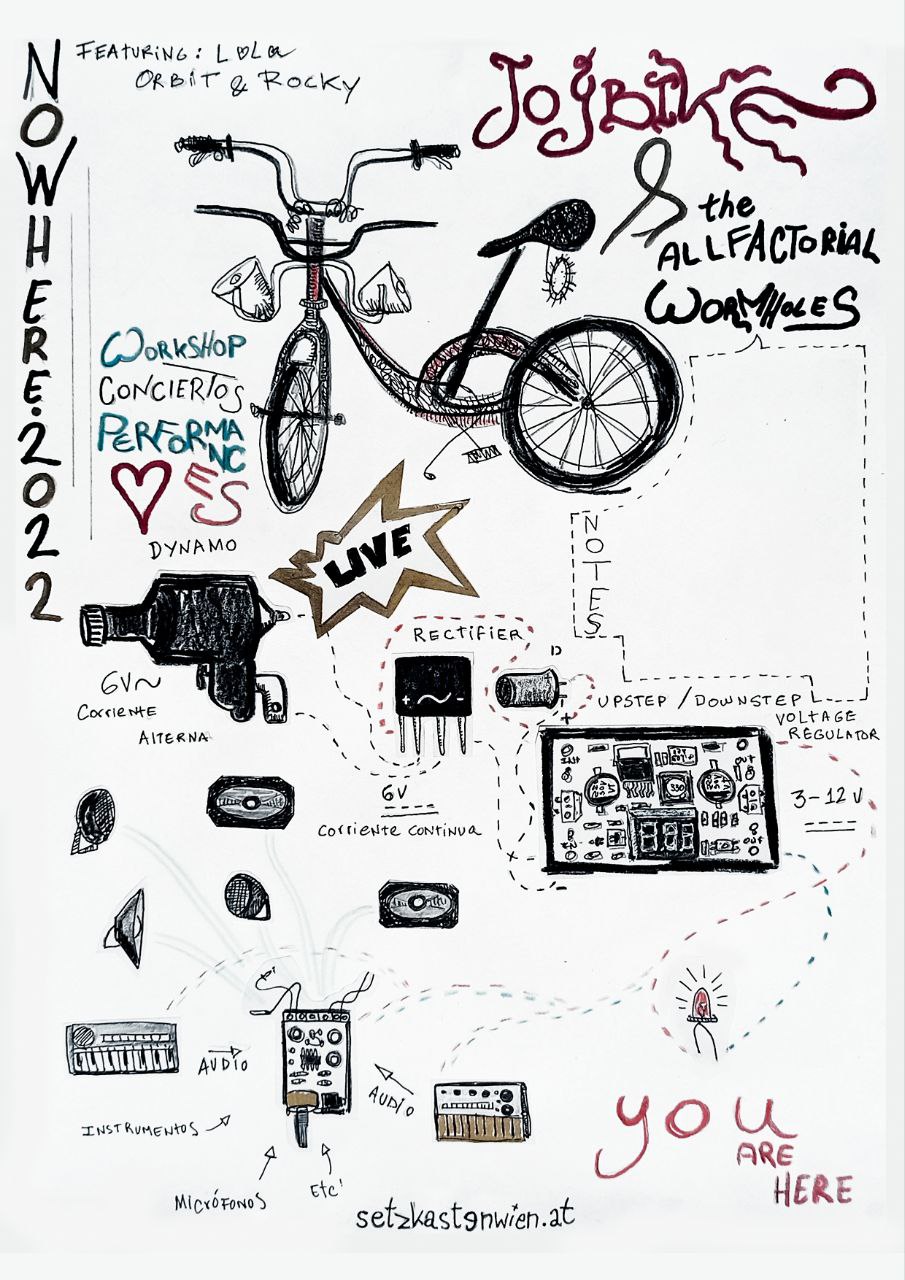 NOWHERE.2022
FEATURING: LOLa
ORBiT & ROCKY
JoyBIKE
& the
ALLFACTORiAL
WORMHOLES
WORKSHOP
CONCIERTOS
PERFORMA
NC
ES
DYNAMO
LIVE
NOTES
RECTiFiER
6V~
Corriente
ALTERNA
+ ~ -
UPSTEP / DOWNSTEP
VOLTAGE
REGULATOR
330
OUT
OUT
3-12 V
6V
Corriente continua
AUDIO
AUDIO
INSTRUMENTOS
MICRÓFONOS
Etc!
you
ARE
HERE
setzkastenwien.at